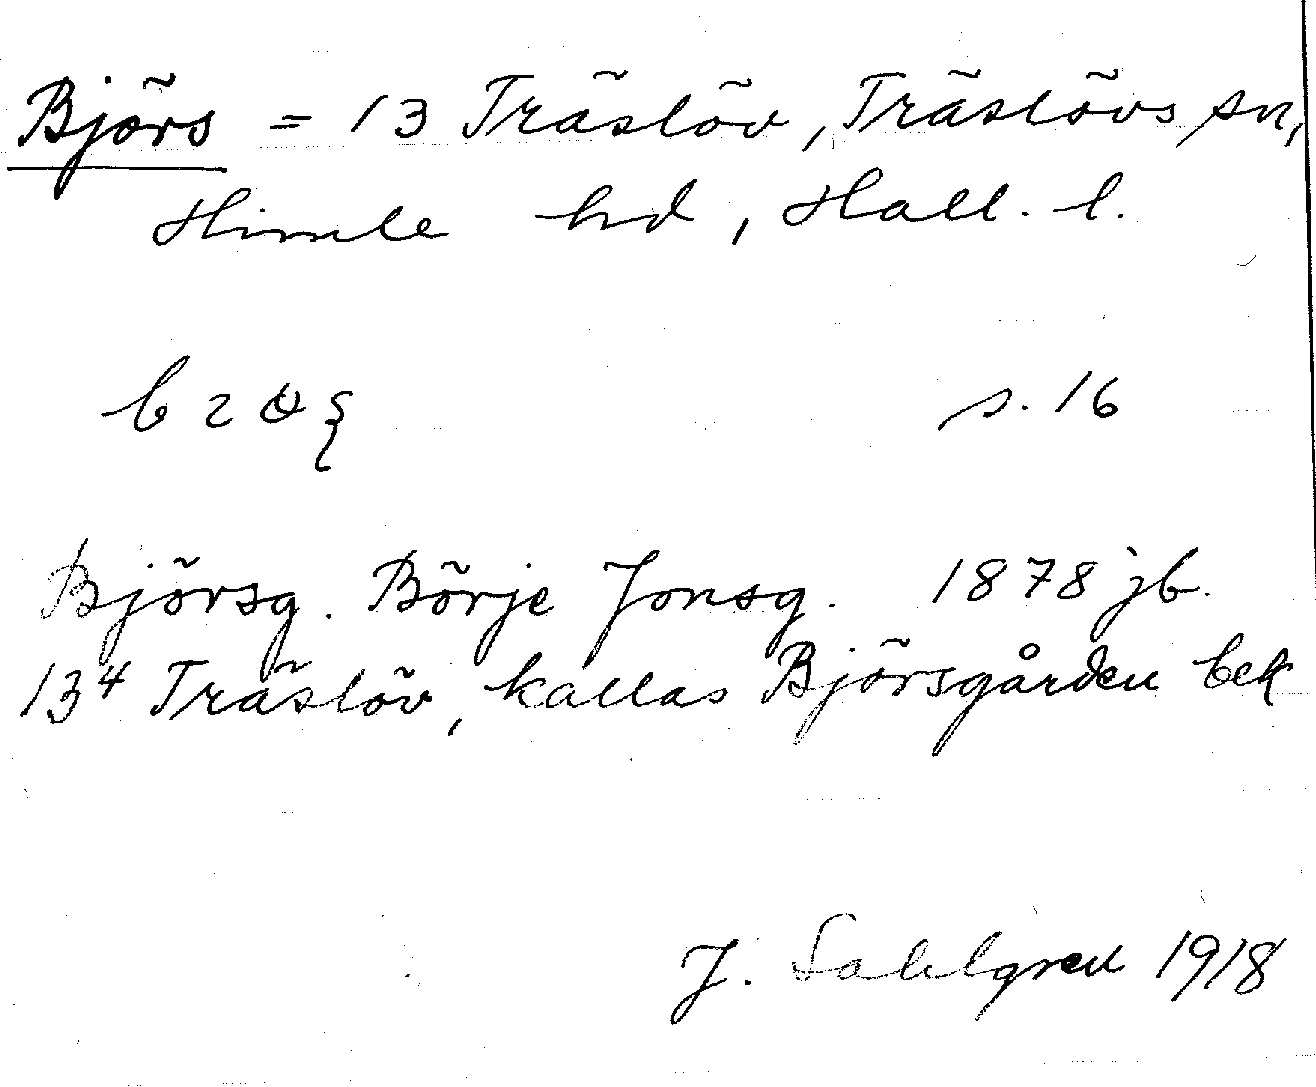 Björs = 13 Träslöv, Träslövs sn,
Himle hd, Hall. l.
s. 16
Björsg. Börje Jonsg. 1878 jb.
13⁴ Träslöv, kallas Björsgården bek
J. Sahlgren 1918